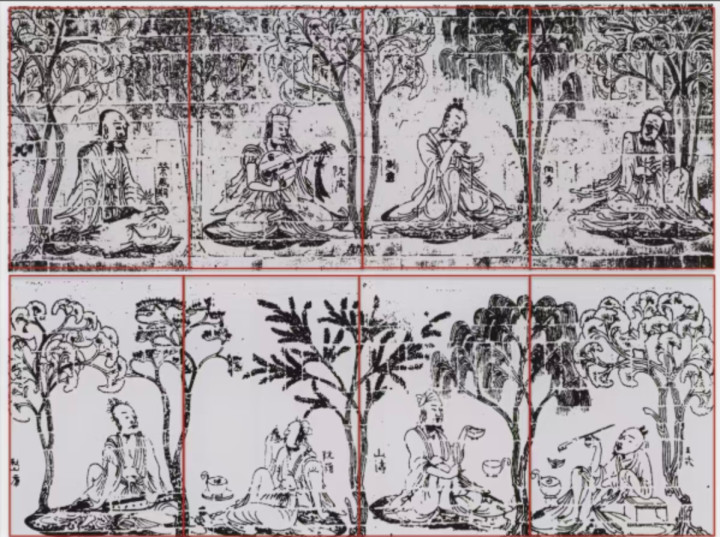 榮啟期
阮咸
劉靈
向秀
阮籍
山濤
王戎